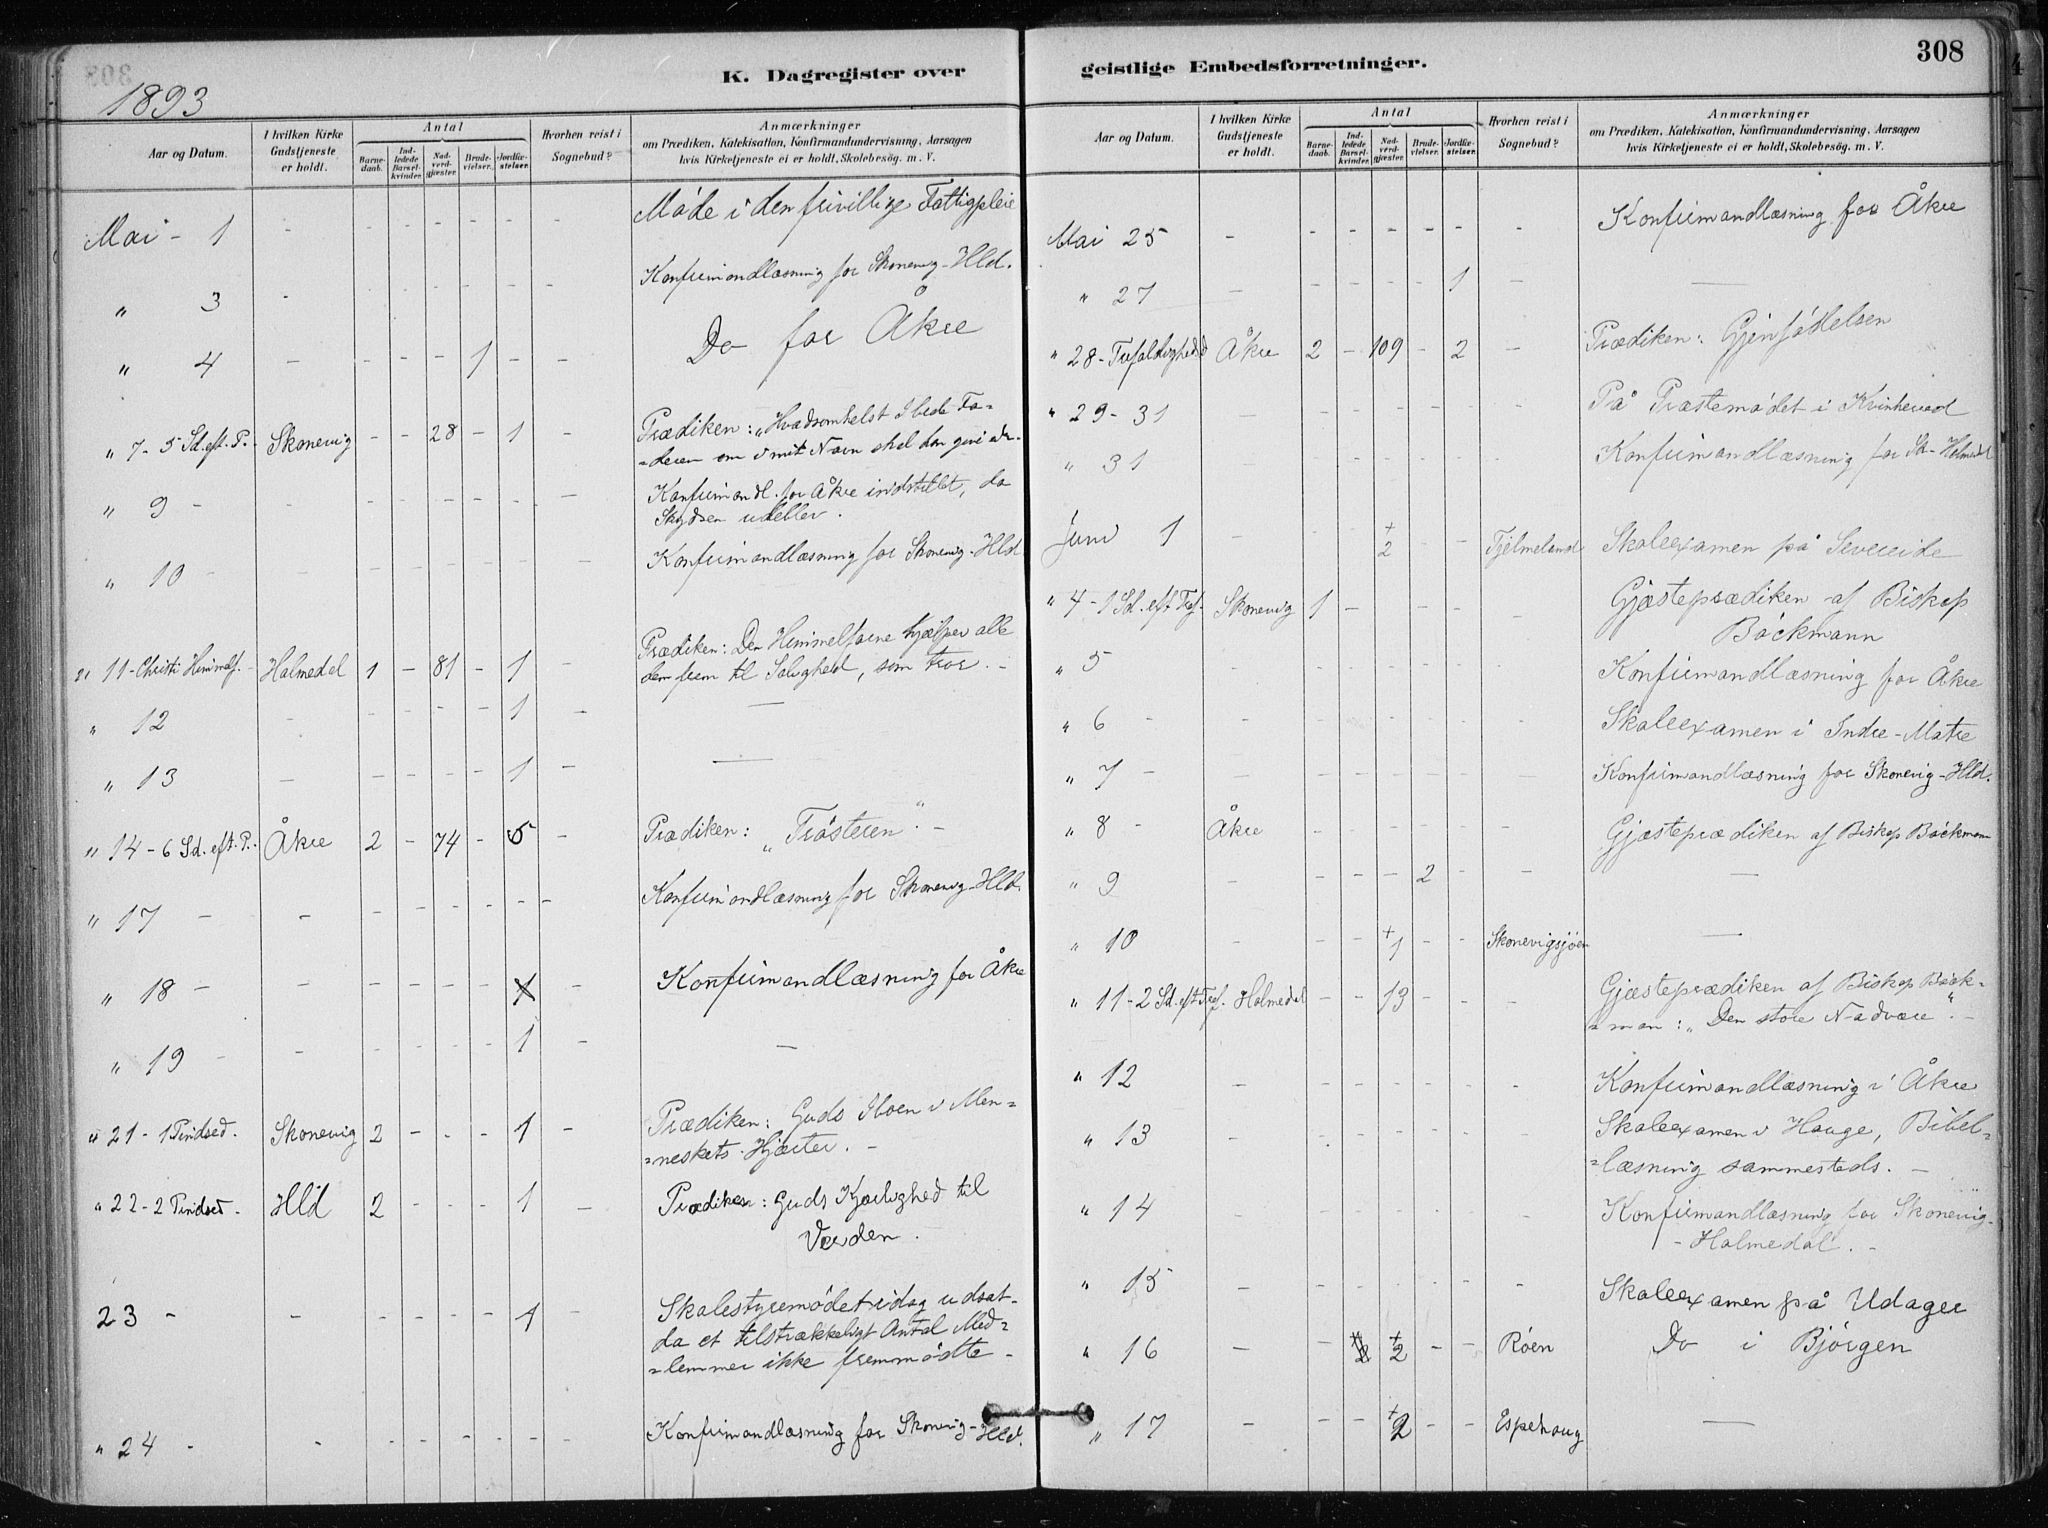 308
K. Dagregister over geistlige Embedsforretninger.
1893
Aar og Datum.
I hvilken Kirke Gudstjeneste er holdt.
Antal
Barnedaab.
Indledede Barselkvinder.
Nadverdgjæster.
Brudevielser.
Jordfæstelser.
Hvorhen reist i Sognebud?
Anmærkninger
om Prædiken, Katekisation, Konfirmandundervisning, Aarsagen
hvis Kirketjeneste ei er holdt, Skolebesøg. m. V.
Mai - 1 - - - - - - - Møde i den frivillige Fattigpleie
" 3 - - - - - - - Konfirmandlæsning for Skonevig-Hld.
" 4 - - - - 1 - - Do for Åkre
" 7 - 5 Sd. eft. P. - Skonevig - - 28 - 1 - Prædiken: "Hvadsomhelst I bede Fa=
=deren om i mit Navn skal han give eder
" 9 - - - - - - - - Konfirmandl. for Åkre indstillet, da
Skydsen udeblev.
" 10 - - - - - - - - Konfirmandlæsning for Skonevig-Hld
" 11 - Christi Himmelf. - Holmedal 1 - 81 - 1 - Prædiken: Den Himmelfarne hjælper alle
dem frem til Salighed, som tror. -
" 12 - - - - - 1 - —
" 13 - - - - - 1 - —
" 14 - 6 Sd. eft. P. - Åkre 2 - 74 - 5 - Prædiken: "Trøsteren". -
" 17 - - - - - - - - Konfirmandlæsning for Skonevig-Hld.
" 18 - - - - - - - Konfirmandlæsning for Åkre
" 19 - - - - - - 1 - -
" 21 - 1 Pindsed. Skonevig 2 - - - 1 - Prædiken: Guds Iboen i Men=
=neskets Hjerter. -
" 22 - 2 Pindsed - Hld 2 - - - 1 - Prædiken: Guds Kjærlighed til
Verden.
23 - - - - - - 1 - Skolestyremødet idag udsat -
da et tilstrækkeligt Antal Med=
=lemmer ikke fremmødte -
" 24 - - - - - - - - Konfirmandlæsning for Skonevig-Hld.
Aar og Datum.
I hvilken Kirke Gudstjeneste er holdt.
Antal
Barnedaab.
Indledede Barselkvinder.
Nadverdgjæster.
Brudevielser.
Jordfæstelser.
Hvorhen reist i Sognebud?
Anmærkninger
om Prædiken, Katekisation, Konfirmandundervisning, Aarsagen
hvis Kirketjeneste ei er holdt, Skolebesøg. m. V.
Mai 25 - - - - - - - Konfirmandlæsning for Åkre
" 27 - - - - - 1 - —
" 28 - Trefoldighedsd Åkre 2 - 109 - 2 - Prædiken: Gjenfødelsen
" 29 - 31 - - - - - - - På Præstemødet i Kvinherred
" 31 - - - - - - - Konfirmandlæsning for Sk-Holmedal
Juni 1 - - - +2 - - Fjelmeland Skoleexamen på Severeide
" 4 - 1 Sd. eft Tref. - Skonevig 1 - - - - - Gjæsteprædiken af Biskop
Bøckmann
" 5 - - - - - - - Konfirmandlæsning for Åkre
" 6 - - - - - - - - Skoleexamen i Indre-Matre
" 7 - - - - - - - - Konfirmandlæsning for Skonevig-Hld.
" 8 - Åkre - - - - - - Gjæsteprædiken af Biskop Bøckman
" 9 - - - - 2 - - —
" 10 - - - +1 - - Skonevigsjøen —
" 11 - 2 Sd. eft Tref. Holmedal - - 13 - - - Gjæsteprædiken af Biskop Bøck=
=man: "Den store Nadvere". -
" 12 - - - - - - - Konfirmandlæsning i Åkre
" 13 - - - - - - - Skoleexamen i Hauge, Bibel=
=læsning sammesteds. -
" 14 - - - - - - - Konfirmandlæsning for Skonevig-
- Holmedal. -
" 15 - - - - - - - Skoleexamen på Udager
" 16 - - +2 - - Røen Do i Bjørgen
" 17 - - - +2 - - Espehaug —